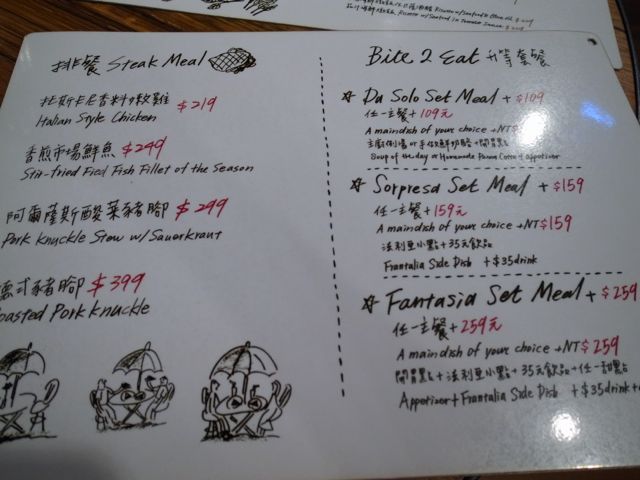 排餐 Steak Meal
托斯卡尼香料嫩雞 $219
Italian Style Chicken
香煎市場鮮魚 $249
Stir-fried Fied Fish Fillet of the Season
阿爾薩斯酸菜豬腳 $299
Pork knuckle Stew w/ Sauerkraut
德式豬腳 $399
oasted Pork Knuckle
Bite 2 Eat 升等套餐
☆ Da Solo Set Meal + $109
任一主餐 + 109元
A main dish of your choice + NT$
主廚例湯 or 手作鮮奶酪 + 開胃點
Soup of the day or Homemade Panna Cotta + appetizer
☆ Sorpresa Set Meal + $159
任一主餐 + 159元
A main dish of your choice + NT$159
法利亞小點 + 35元飲品
Frantalia Side Dish + $35 drink
☆ Fantasia Set Meal + $259
任一主餐 + 259元
A main dish of your choice + NT$259
開胃點 + 法利亞小點 + 35元飲品 + 任一甜點
Appetizer + Frantalia Side Dish + $35 drink +